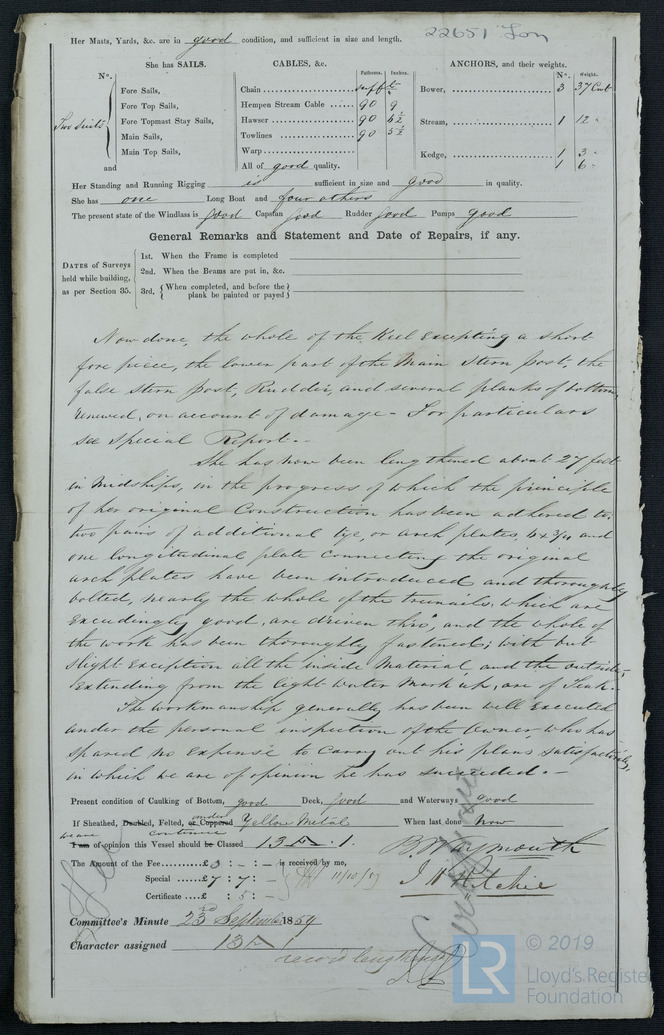 22651 Lon
Her Masts, Yards, &c. are in good condition, and sufficient in size and length.
She has SAILS.
No.
Two suits
Fore Sails,
Fore Top Sails,
Fore Topmast Stay Sails,
Main Sails,
Main Top Sails,
and
CABLES, &c.
Fathoms. Inches.
Chain sufft
Hempen Stream Cable 90 9
Hawser 90 6½
Towlines 90 5½
Warp
All of good quality.
ANCHORS, and their weights.
No. Weight.
Bower, 3 37 Cwt
Stream, 1 12 "
Kedge, 1 3 "
1 6 "
Her Standing and Running Rigging is sufficient in size and good in quality.
She has one Long Boat and four others
The present state of the Windlass is good Capstan good Rudder good Pumps good
General Remarks and Statement and Date of Repairs, if any.
DATES of Surveys held while building, as per Section 35.
1st. When the Frame is completed
2nd. When the Beams are put in, &c.
3rd. When completed, and before the plank be painted or payed
Now done, the whole of the Keel excepting a short
fore piece, the lower part of the Main Stern Post, the
false Stern Post, Rudder, and several planks of bottom,
renewed, on account of damage - For particulars
see Special Report. -
She has now been lengthened about 27 feet
in Midships, in the progress of which the principle
of her original Construction has been adhered to.
two pairs of additional tye, or arch plates, 6 x 3/4 and
one longitudinal plate connecting the original
arch plates have been introduced and thoroughly
bolted, nearly the whole of the treenails, which are
exceedingly good, are driven thro', and the whole of
the work has been thoroughly fastened; with but
slight exception all the inside Material, and the outside,
extending from the light water mark up, are of Teak. -
The workmanship generally has been well executed
under the personal inspection of the Owner who has
spared no expense to carry out his plans satisfactorily,
in which we are of opinion he has succeeded. -
Present condition of Caulking of Bottom, good Deck, good and Waterways good
If Sheathed, Doubled, Felted, or Coppered under Yellow Metal When last done Now
I am of opinion this Vessel should be Classed we are continue 13 A. 1.
The Amount of the Fee.....£5 : - : - is received by me,
Special.....£7 : 7 : - 11/10/59
Certificate....£ : 5 : -
B. Waymouth
J H Ritchie
Committee's Minute 23rd September 1859
Character assigned 13 A 1
record lengthened
© 2019
LR
Lloyd's Register
Foundation